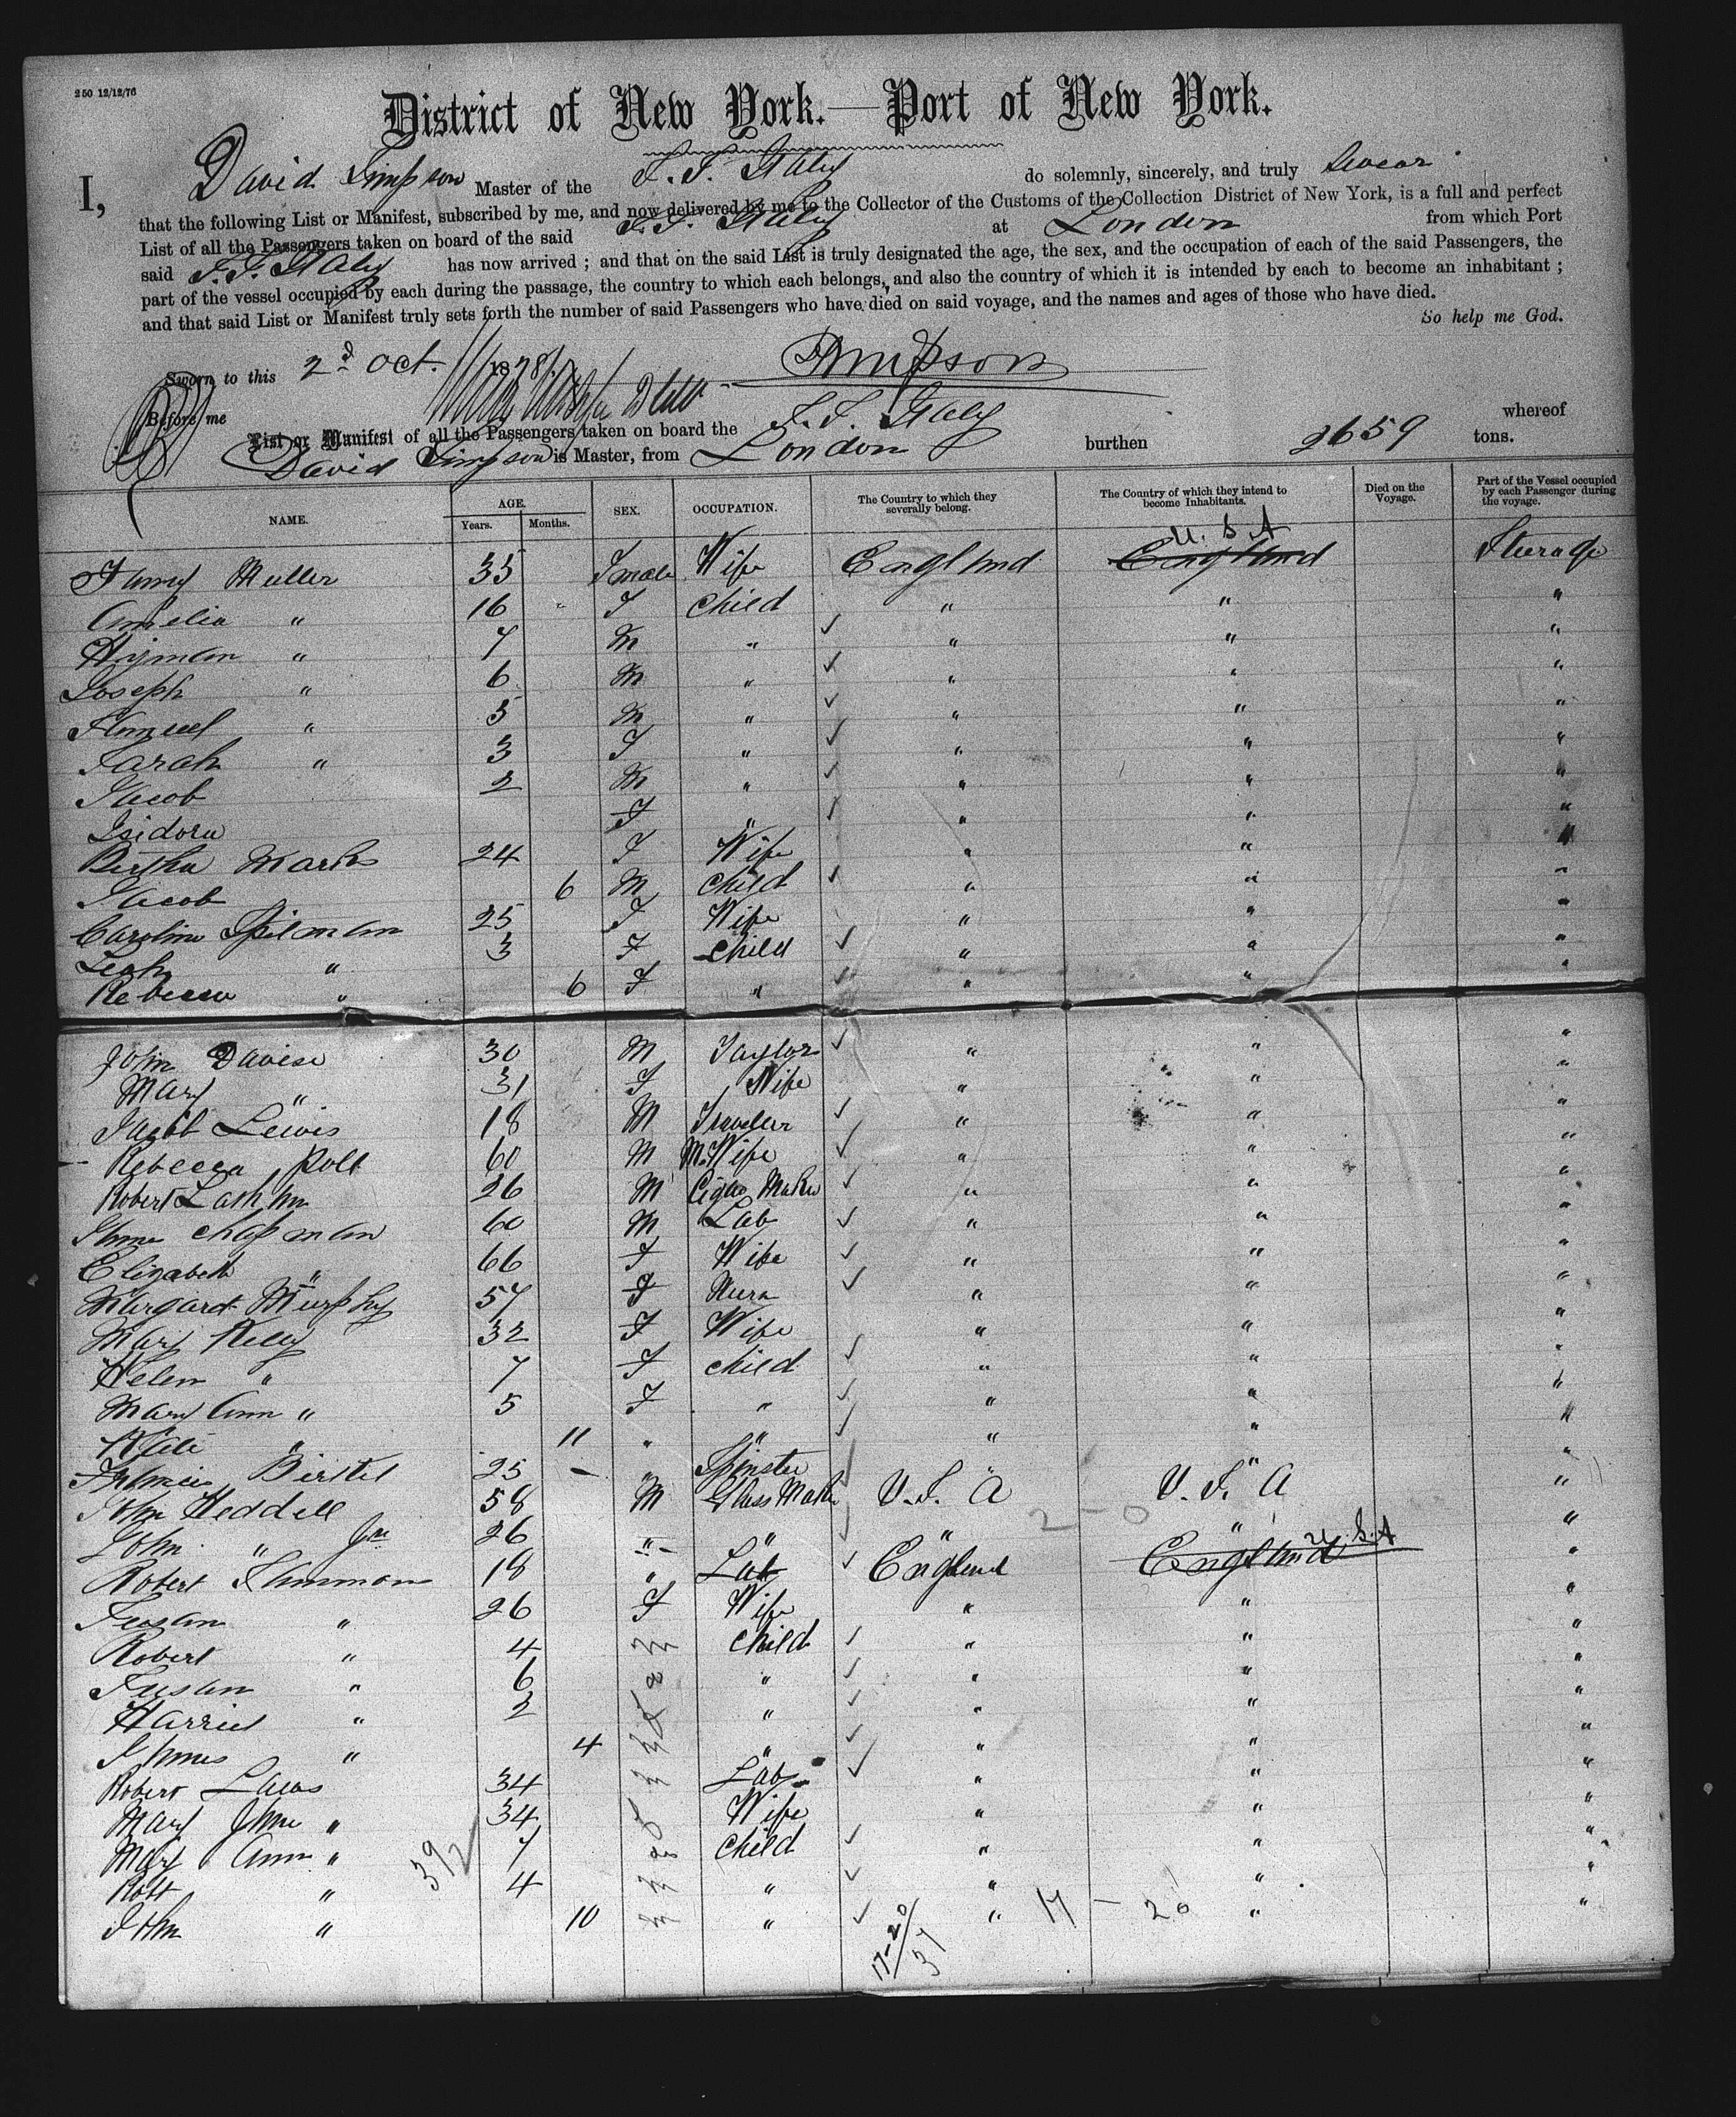 250 12/12/76
District of New York.—Port of New York.
I, David Simpson Master of the S.S. Italy do solemnly, sincerely, and truly Swear
that the following List or Manifest, subscribed by me, and now delivered by me to the Collector of the Customs of the Collection District of New York, is a full and perfect
List of all the Passengers taken on board of the said S.S. Italy at London from which Port
said S.S. Italy has now arrived; and that on the said List is truly designated the age, the sex, and the occupation of each of the said Passengers, the
part of the vessel occupied by each during the passage, the country to which each belongs, and also the country of which it is intended by each to become an inhabitant;
and that said List or Manifest truly sets forth the number of said Passengers who have died on said voyage, and the names and ages of those who have died.
So help me God.
Sworn to this 2d Oct. 1878 Simpson
Before me
List or Manifest of all the Passengers taken on board the S.S. Italy whereof
David Simpson is Master, from London burthen 2659 tons.
NAME. AGE. Years. Months. SEX. OCCUPATION. The Country to which they severally belong. The Country of which they intend to become Inhabitants. Died on the Voyage. Part of the Vessel occupied by each Passenger during the voyage.
U.S.A
Fanny Muller 35 Female Wife England England Sterage
Amelia " 16 " F Child " " "
Hyman " 7 M " " " "
Joseph " 6 M " " " "
Samuel " 5 M " " " "
Sarah " 3 F " " " "
Jacob 2 M " " " "
Isidora F " " " "
Bertha Marks 24 F Wife " " "
Jacob 6 M Child " " "
Caroline Spilman 25 F Wife " " "
Leah " 3 F Child " " "
Rebecca " 6 F " " " "
John Davise 30 M Taylor " " "
Mary " 31 F Wife " " "
Jacob Lewis 18 M Traveller " " "
Rebecca 60 M M. Wife " " "
Robert 26 M Cigar Maker " " "
Chapman 60 M Lab " " "
Elizabeth " 66 F Wife " " "
Margaret Murphy 57 F " " "
Mary Kelly 32 F Wife " " "
Helen " 7 F Child " " "
Mary Ann " 5 F " " " "
Kate " 11 " " " " "
25 – " Spinster " " "
John Heddell 58 M Glass Maker U.S. A U.S. A "
John " Jr 26 " " " " "
U.S.A
Robert 18 " Lab England England "
Susan " 26 F Wife " " "
Robert " 4 Child " " "
Susan " 6 " " " "
Harriet " 2 " " " "
James " 4 " " " "
Robert Laws 34 Lab " " "
Mary Jane " 34 Wife " " "
Mary Ann " 7 Child " " "
Robt " 4 " " " "
John " 10 " " " "
39/2
2 – 0
17 – 20
17–20
37